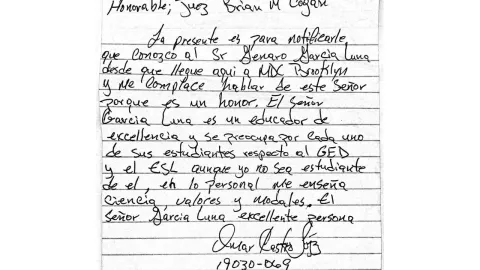 Honorable; Juez Brian M Cogan
La presente es para notificarle
que conozco al Sr Genaro Garcia Luna
desde que llegue aqui a MDC Brooklyn
y me complace hablar de este Señor
porque es un honor. El señor
Garcia Luna es un educador de
excelencia y se preocupa por cada uno
de sus estudiantes respecto al GED
y el ESL aunque yo no sea estudiante
de el, en lo personal me enseña
ciencia, valores y modales. El
señor Garcia Luna excellente persona
Omar Castro
19030-069